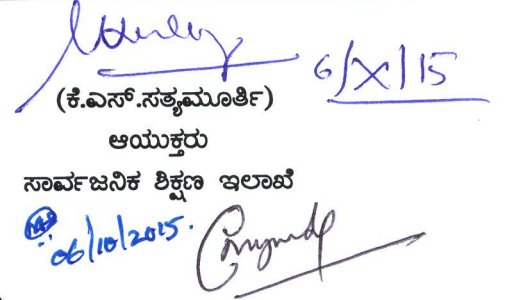 6/X/15
(ಕೆ.ಎಸ್.ಸತ್ಯಮೂರ್ತಿ)
ಆಯುಕ್ತರು
ಸಾರ್ವಜನಿಕ ಶಿಕ್ಷಣ ಇಲಾಖೆ
06/10/2015.